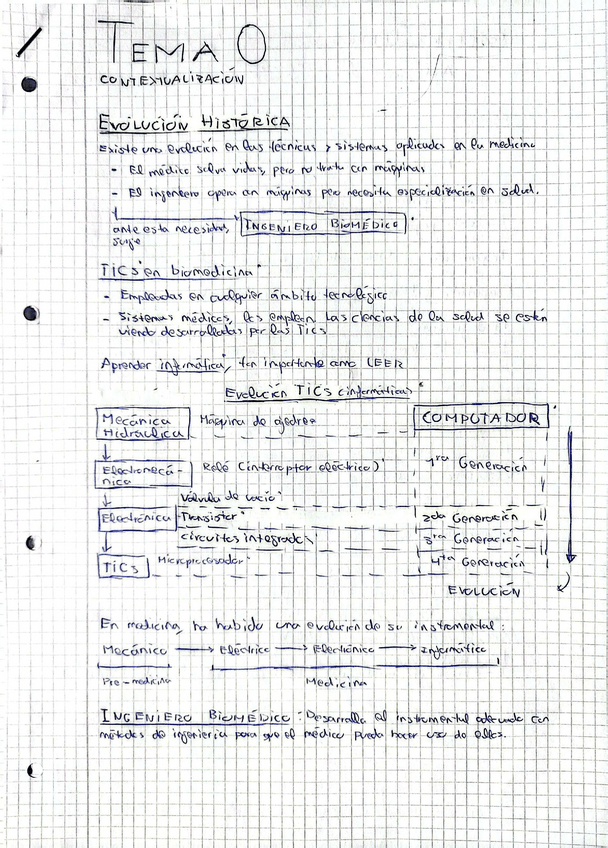 TEMA 0
CONTEXTUALIZACIÓN
EVOLUCIÓN HISTÓRICA
Existe una evolución en las técnicas y sistemas aplicados en la medicina
- El médico salva vidas, pero no trata con máquinas
- El ingeniero opera con máquinas pero necesita especialización en salud.
ante esta necesidad, INGENIERO BIOMÉDICO
surge
TICs en biomedicina
- Empleadas en cualquier ámbito tecnológico
- Sistemas médicos, las emplean. Las ciencias de la salud se están
viendo desarrolladas por las TICs
Aprender informática, tan importante como LEER
Evolución TICs (informática)
Mecánica Máquina de ajedrez COMPUTADOR
Hidráulica
Electromecá- Relé (interruptor eléctrico) 1ra Generación
nica
Válvula de vacío
Electrónica Transistor 2da Generación
circuitos integrados 3ra Generación
TICs Microprocesador 4ta Generación
EVOLUCIÓN
En medicina, ha habido una evolución de su instrumental:
Mecánico → Eléctrico → Electrónico → Informático
Pre-medicina Medicina
INGENIERO BIOMÉDICO: Desarrolla el instrumental adecuado con
métodos de ingeniería para que el médico pueda hacer uso de ellos.